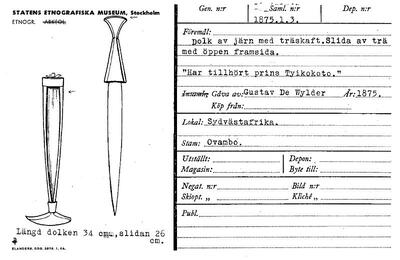 STATENS ETNOGRAFISKA MUSEUM, Stockholm
ETNOGR.
Längd dolken 34 cm, slidan 26 cm.
ESSELTE 1.54.
Gen. n:r Saml. n:r Dep. n:r
1875.1.3.
Föremål:
Dolk av järn med träskaft. Slida av trä
med öppen framsida.
"Har tillhört prins Tyikokoto."
Gåva av: Gustav De Wylder År: 1875.
Köp från:
Lokal: Sydvästafrika.
Stam: Ovambo.
Utställt: Depon:
Magasin: Byte till:
Negat. n:r Bild n:r
Skiopt. „ Kliché „
Publ.